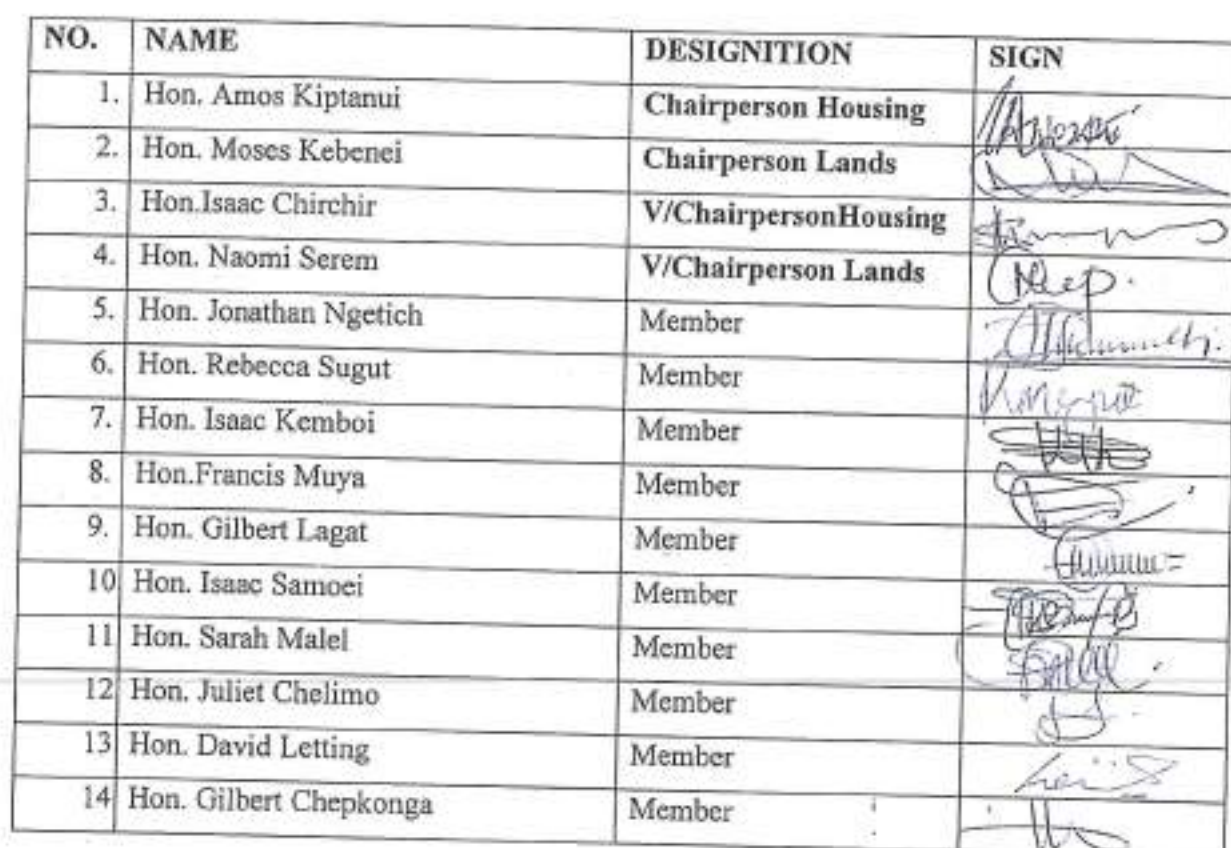 NO. NAME DESIGNITION SIGN
1. Hon. Amos Kiptanui Chairperson Housing
2. Hon. Moses Kebenei Chairperson Lands
3. Hon.Isaac Chirchir V/ChairpersonHousing
4. Hon. Naomi Serem V/Chairperson Lands
5. Hon. Jonathan Ngetich Member
6. Hon. Rebecca Sugut Member
7. Hon. Isaac Kemboi Member
8. Hon.Francis Muya Member
9. Hon. Gilbert Lagat Member
10 Hon. Isaac Samoei Member
11 Hon. Sarah Malel Member
12 Hon. Juliet Chelimo Member
13 Hon. David Letting Member
14 Hon. Gilbert Chepkonga Member